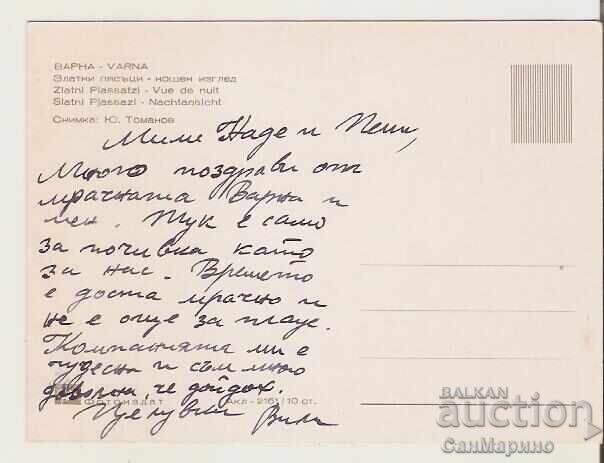 ВАРНА - VARNA
Златни пясъци - нощен изглед
Zlatni Piassatzi - Vue de nuit
Slatni Pjassazi - Nachtansicht
Снимка: Ю. Томанов
Мили Наде и Пепи,
Много поздрави от
мрачната Варна и
мен. Тук е само
за почивка като
за нас. Времето
е доста мрачно и
не е още за плаж.
Компанията ми е
чудесна и съм много
доволна, че дойдох.
Целувки
Фотоиздат Акл - 2161/10 ст.
BALKAN
auction
СанМарино